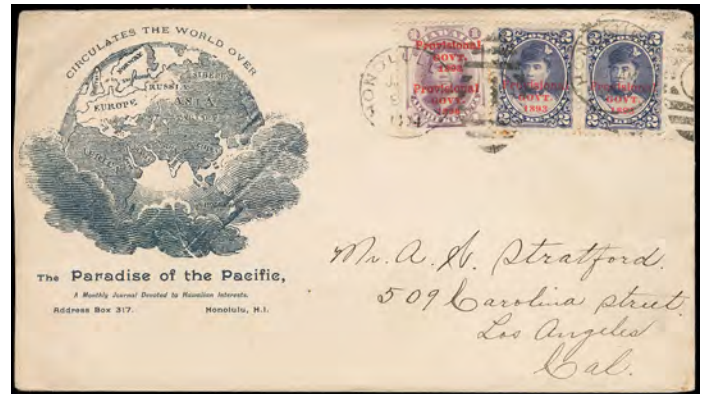 CIRCULATES THE WORLD OVER
EUROPE
RUSSIA
ASIA
The Paradise of the Pacific,
A Monthly Journal Devoted to Hawaiian Interests.
Address Box 317. Honolulu, H.I.
Provisional
GOVT.
1893
Provisional
GOVT.
2 2
Provisional
GOVT.
1893
2 2
2 2
Provisional
GOVT.
1893
2 2
HONOLULU
Mr. A. S. Stratford.
509 Carolina street.
Los Angeles
Cal.